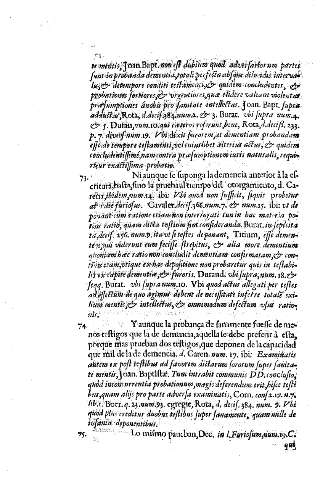 te mentis, Joan. Bapt. non est dubium quod adversariorum partes
sunt in probanda dementia,
& de tempore conditi testamenti, & quidem concludenter, &
probationes fortiores, & urgentiores, quæ elidere valeant violentas
præsumptiones à nobis pro sanitate intellectus. Joan. Bapt. supra
adductas, Rota, d. decis. 484. num. 2. & 3. Burat. vbi supra num. 4.
& 5. Rota, d. decis. 233.
p. 7. num. 19. Vbi furorem, at dementiam probandum
esse de tempore testamenti, vel cuiuslibet alterius actus, & quidem
concludentissimè, nam contra præsumptionem iuris naturalis, requi-
ritur exactissima probatio.
73. Ni aunque se suponga la demencia anterior à la es-
critura, basta, sino la prueba al tiempo del otorgamiento, d. Ca-
ibidem, num. 24. ibi: Vbi quod non sufficit, siquis probetur
Cavaler. decis. 568. num. 7. & num. 15. ibi: et de-
ponant cum ratione etiam non interrogati tunc in hac materia po-
tius ratio, quam dicta testium sunt consideranda. Burat. in
ta, decis. 256. num. si testes deponant, Titium, esse demen-
tem, qui viderunt eum fecisse strepitus, & alia more dementium
quoniam hæc ratio non concludit dementiam confirmatam, & con-
ex dictis depositione non probaretur quis in testabi-
lis ex capite dementiæ, & furoris. Durand. vbi supra, num. 18. &
seqq. Burat. vbi supra num. 10. Vbi quod actus allegati per testes
ad effectum de quo agimus debent de necessitate inferre totale exi-
lium mentis, & intellectus, & omnimodum defectum vsus ratio-
nis.
74. Y aunque la probança de sanamente fuesse de me-
nos testigos que la de demencia, aquella se debe preferir à esta,
porque mas prueban dos testigos, que deponen de la capacidad
que mil de la de demencia. d. Caren. num. 17. ibi: Examinatis
autem ex post testibus ad favorem dictarum sororum super sanita-
te mentis, Joan. Baptistæ. Tum intrabit communis DD. conclusio,
quod in concurrentia probationum, magis deferendum erit,
bus, quam alijs pro parte adversa examinatis, Com. cons. 12. n. 7.
lib. 1. Burt. q. 23. num. 93. egregie, Rota, d. decis. 484. num. 9. Vbi
quod plus creditur duobus testibus super sanamente, quam mille de
insania deponentibus.
75. Lo mismo prueban, Dec. in l. Furiosum, num. 19. C.
qui